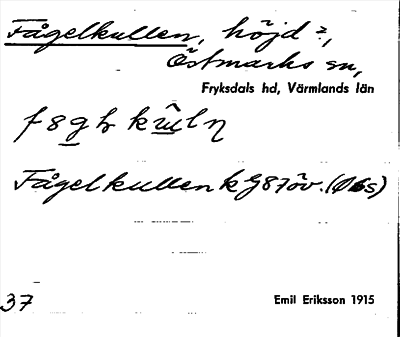 Fågelkullen, höjd ?,
Östmarks sn,
Fryksdals hd, Värmlands län
Fågelkullen k G87öv. (Øbs)
37
Emil Eriksson 1915